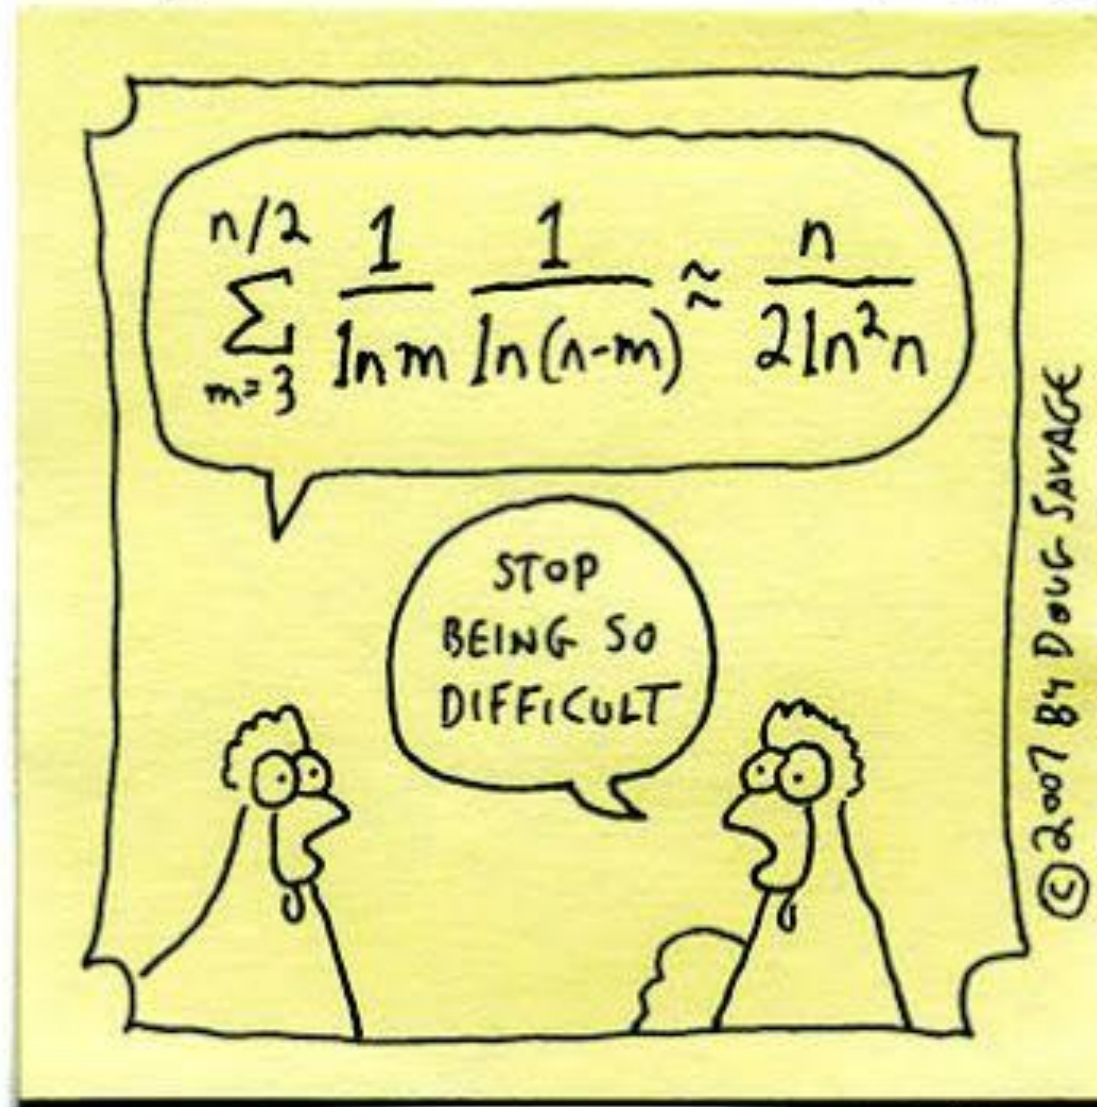 n/2
∑ 1/ln m 1/ln(n-m) ≈ n/2ln²n
m=3
STOP
BEING SO
DIFFICULT
©2007 BY DOUG SAVAGE